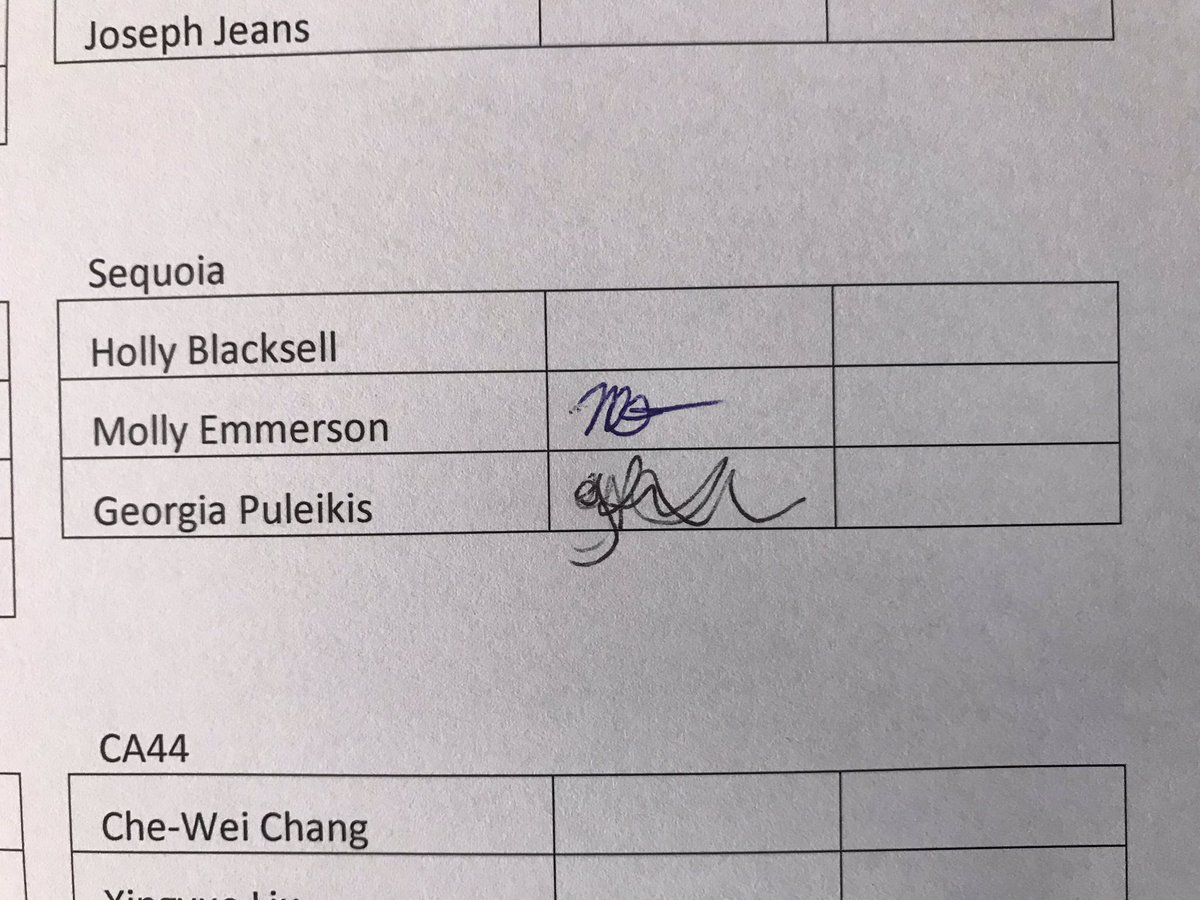 Joseph Jeans
Sequoia
Holly Blacksell
Molly Emmerson
Georgia Puleikis
CA44
Che-Wei Chang